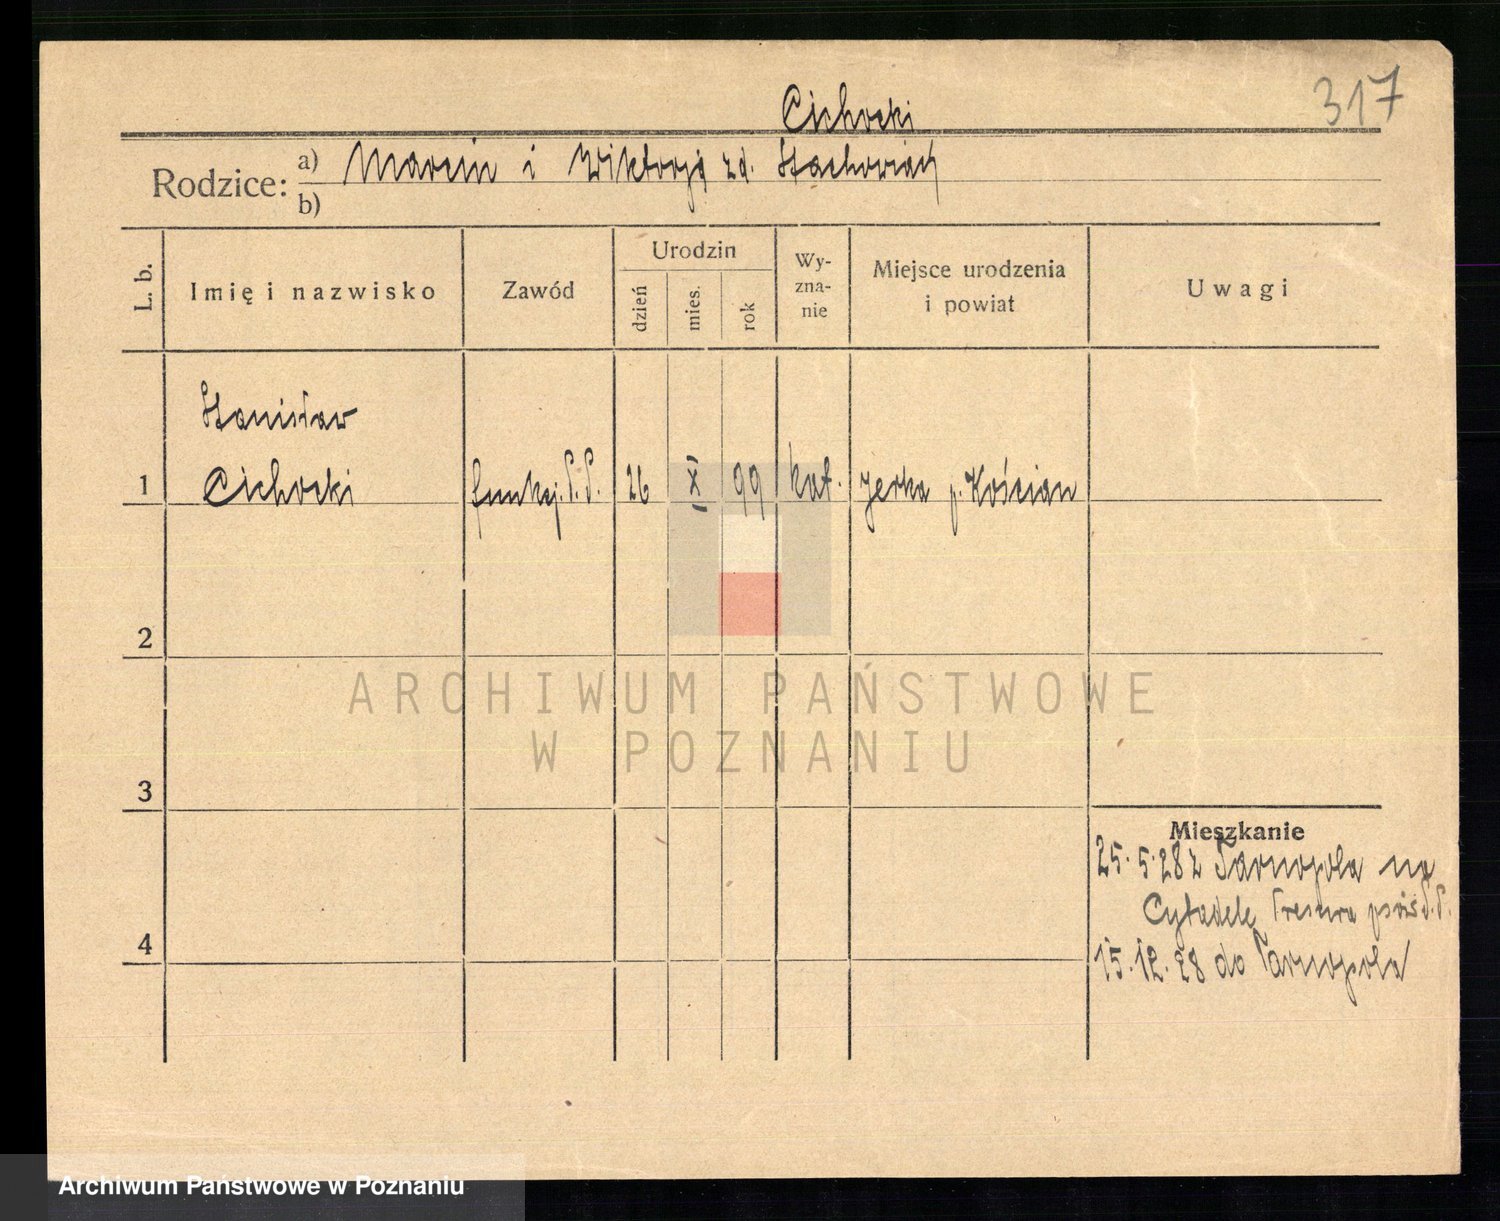 317
Cichocki
Rodzice: a) Marcin i Wiktorja zd. Stachowiak
b)
L. b.
Imię i nazwisko
Zawód
Urodzin
dzień
mies.
rok
Wy-
zna-
nie
Miejsce urodzenia
i powiat
Uwagi
Stanisław
1 Cichocki funkcj. P.P. 26 XI 99 kat. Jerka p. Kościan
2
ARCHIWUM PAŃSTWOWE
W POZNANIU
3
Mieszkanie
25.5.28 z Tarnopola na
Cytadelę Tresura psów P.P.
4
15.12.28 do Tarnopola
Archiwum Państwowe w Poznaniu